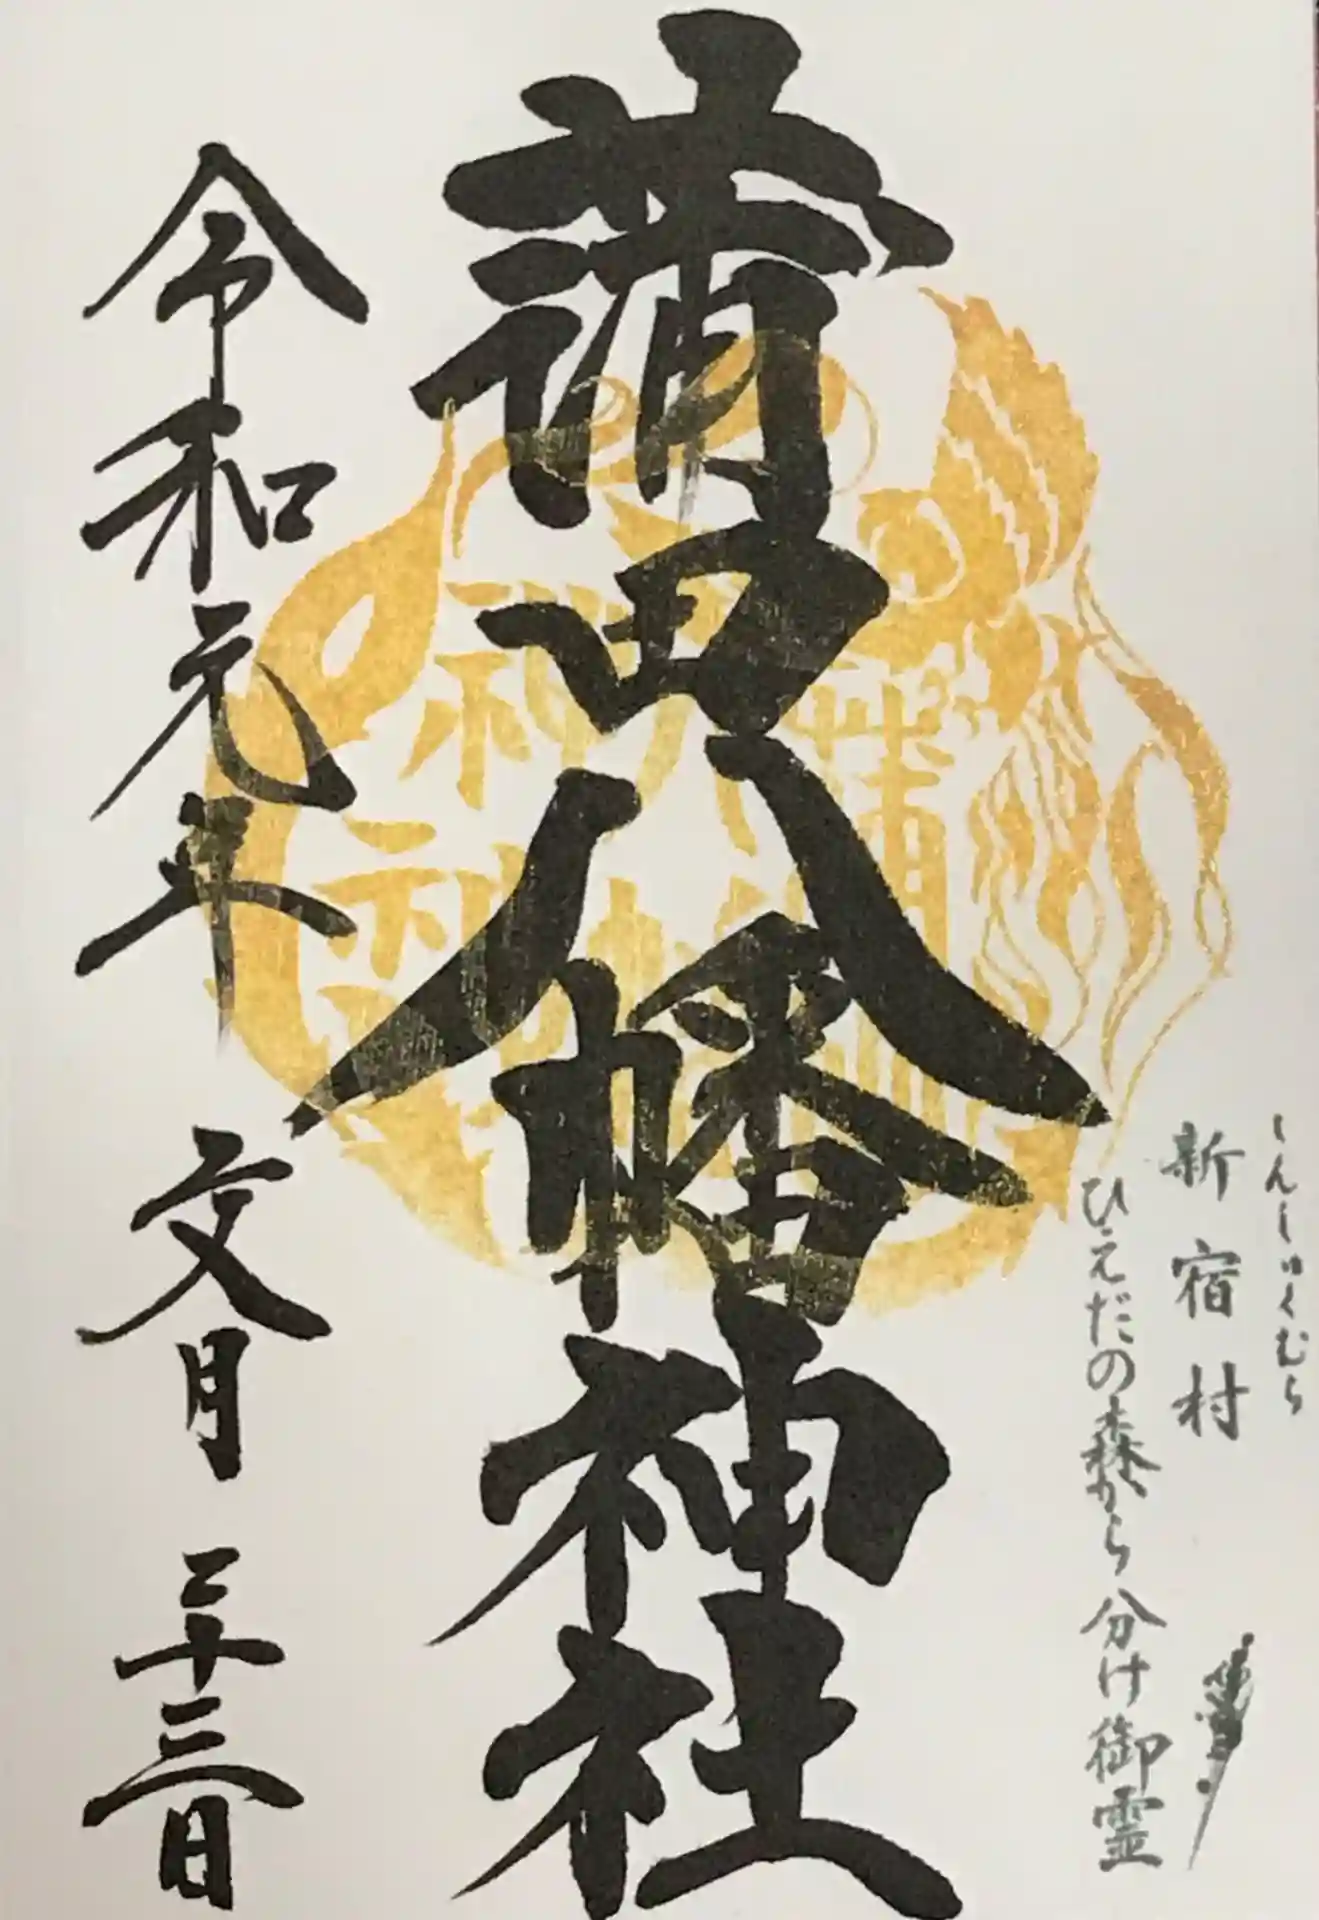 しんしゅくむら
新宿村
ひえだの森から分け御霊
蒲田八幡神社
令和元年 文月 二十三日
蒲田
神社